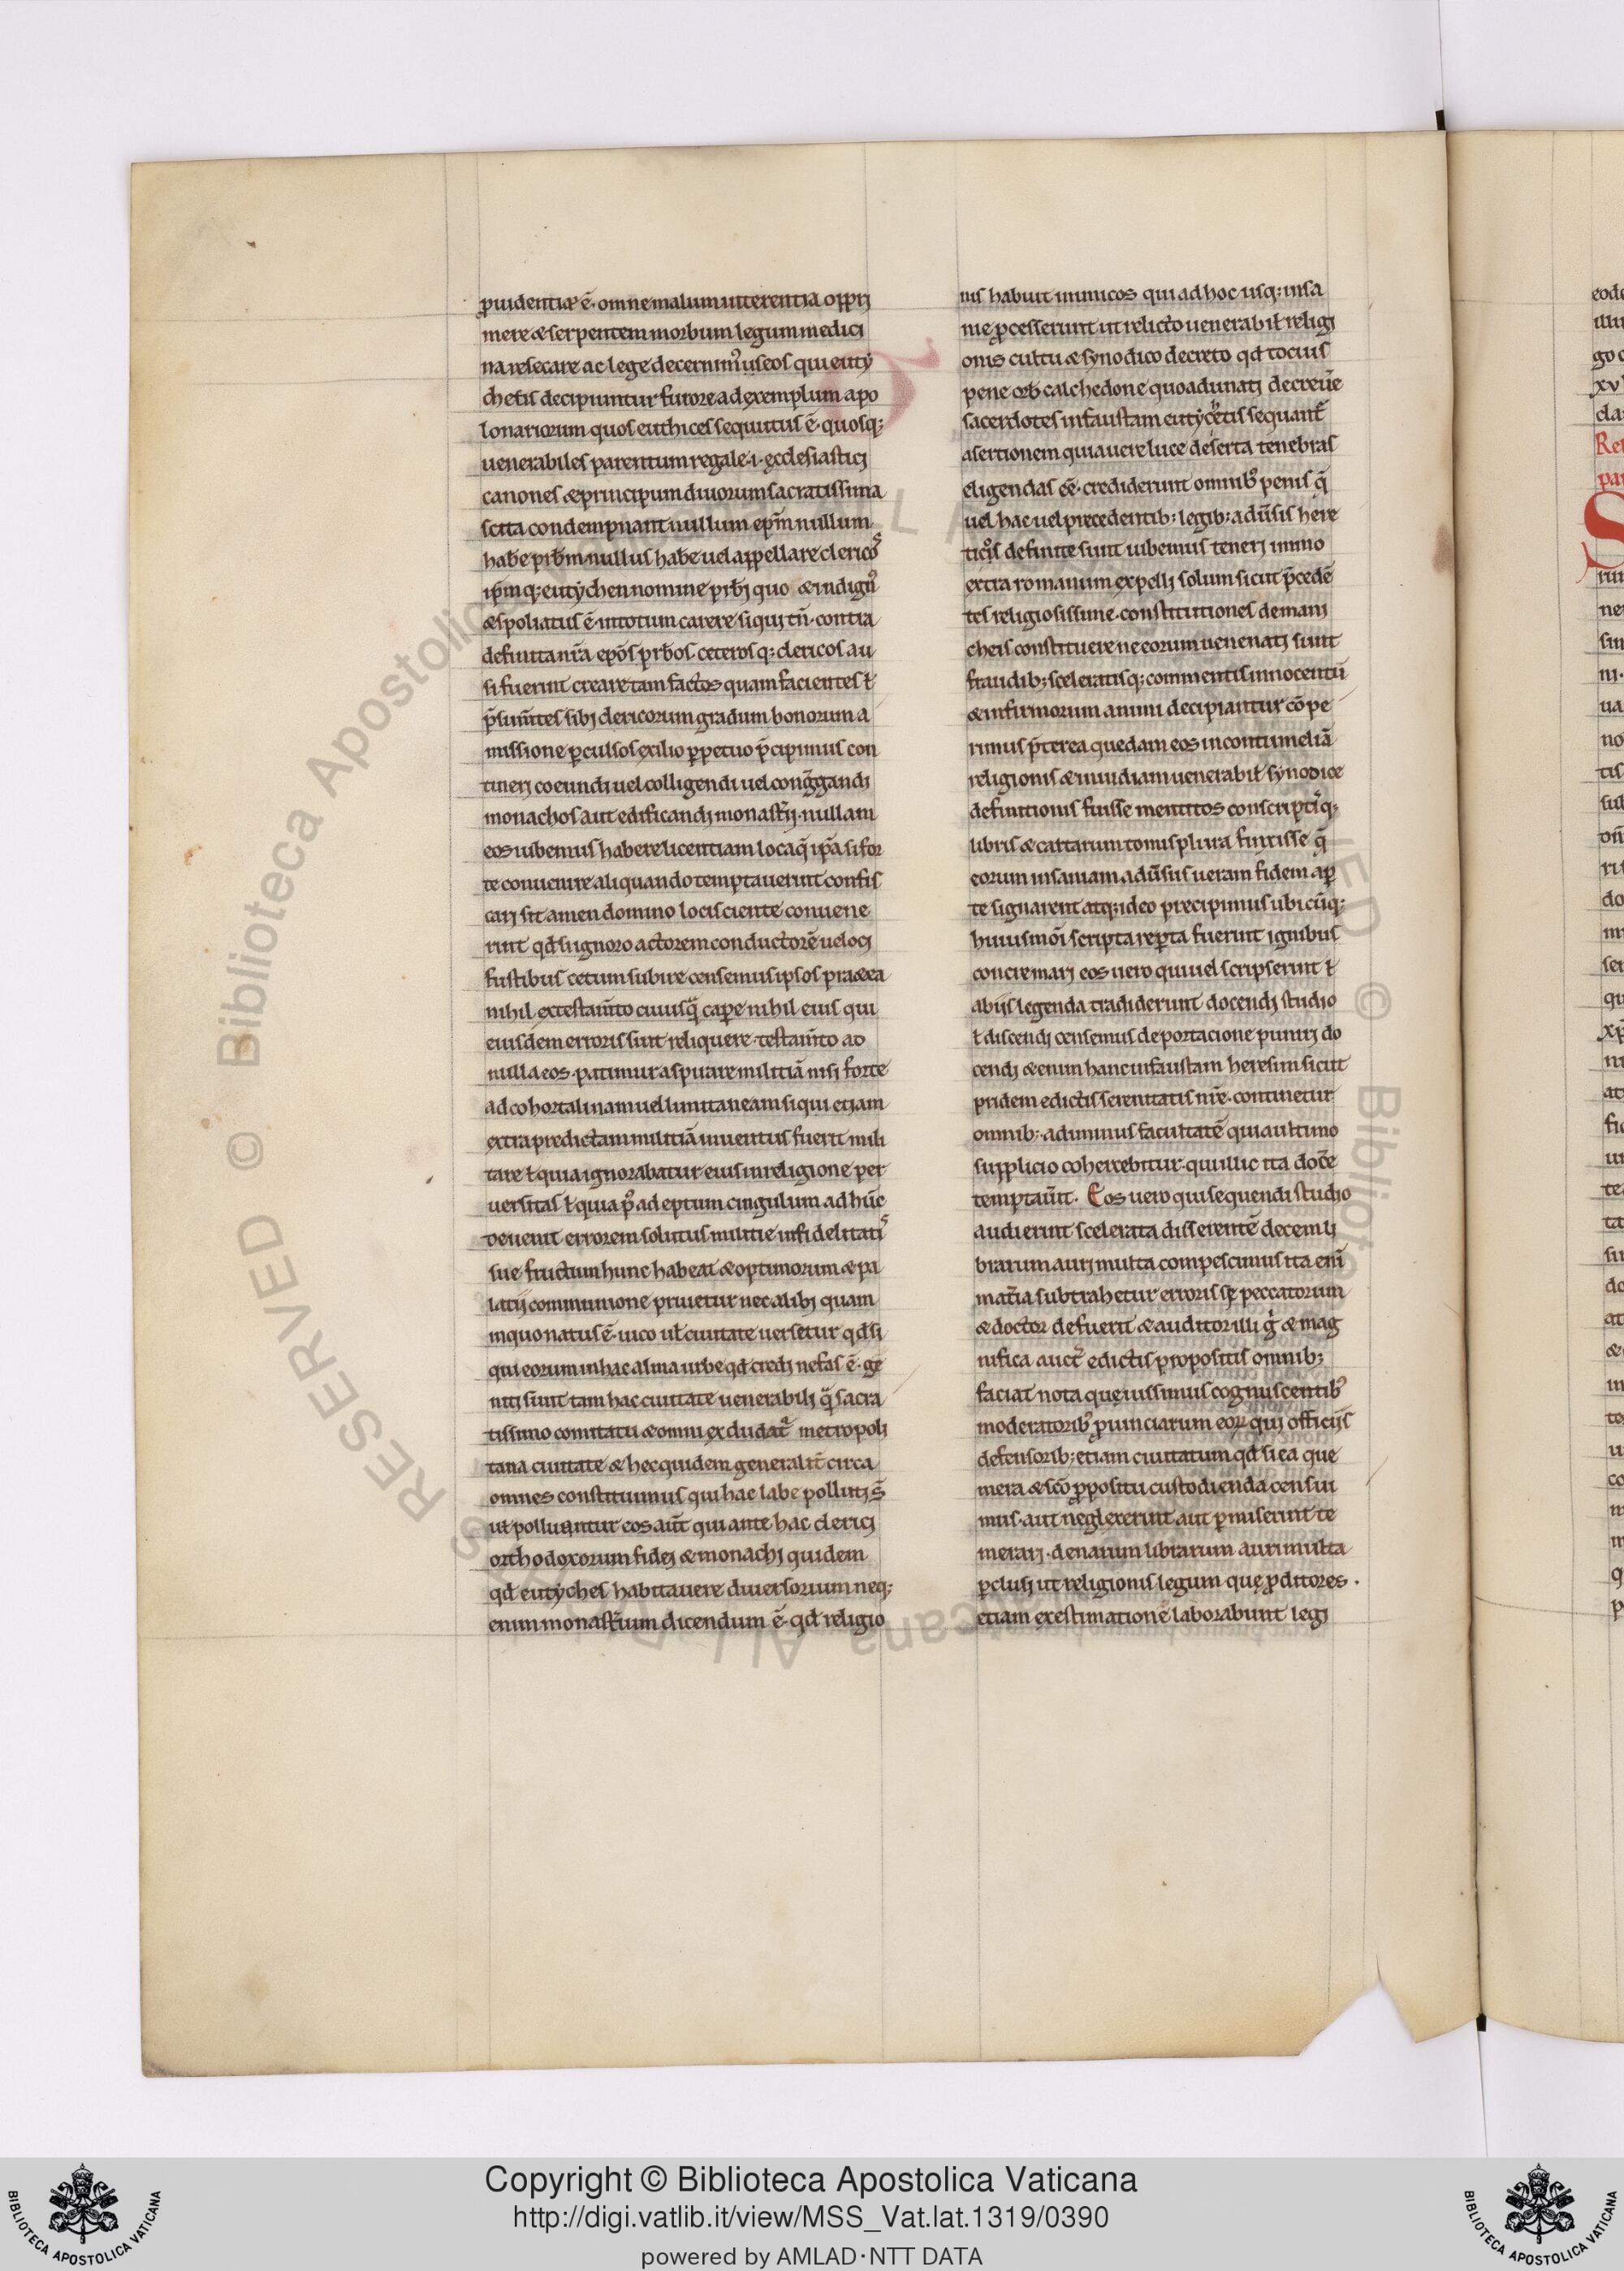 ꝓuidentiæ ē· omne malum uitterentia oppri
mere & serpentem morbum legum medici
na resecare ac lege decernimꝰ ut eos qui euty
chetis decipiuntur furore ad exemplum apo
lonariorum quos euthices sequutus ē· quosq;
uenerabiles parentum regale·i·ęcclesiastici
canones & principum diuorum sacratissima
scita condempnant nullum ep̄m nullum
hab̄e pr̄bm· nullus hab̄e uel appellare clericos
ip̄mq; eutychen nomine pr̄bi quo & indignꝰ
& spoliatus ē· in totum carere si qui tn̄· contra
definita nr̄a ep̄os pr̄bos· ceterosq; clericos au
si fuerint creare tam factos quam facientes ł
p̄sum̄tes sibi clericorum gradum bonorum a
missione ꝑculsos exilio ꝑpetuo p̄cipimus con
tineri coeundi uel colligendi uel cong̃gandi
monachos aut edificandi monastr̄ii· nullam
eos iubemus habere licentiam locaq̄ ip̄a si for
te conuenire aliquando temptauerint confis
cari sit amen domino loci sciente conuene
rint qd̄ si ignoro actorem conductorē ue loci
fustibus cetum subire censemus ipsos præterea
nihil ex testam̄to cuiusq̄ caꝑe nihil eius qui
eiusdem erroris sint reliquere· testam̄to ad
nulla eos· patimur aspirare militiā nisi forte
ad cohortalinam uel limitaneam si qui etiam
extra predictam militiā inuentus fuerit mili
tare ł quia ignorabatur eius in religione per
uersitas ł quia pꝰ adeptum cingulum ad hūc
deuenit errorem solutus militie infidelitatis
sue fructum hunc habeat & optimorum & pa
latii communione priuetur nec alibi quam
in quo natus ē· uico uł ciuitate uersetur qd̄ si
qui eorum in hac alma urbe qd̄ credi nefas ē· ge
niti sunt tam hac ciuitate uenerabili q̄ sacra
tissimo comitatu & omni excludat᷑ metropoli
tana ciuitate & hec quidem generalit̄ circa
omnes constituimus qui hac labe polluti s̄
uł polluuntur eos aūt qui ante hac clerici
orthodoxorum fidei & monachi quidem
qd̄ eutyches habitauere diuersorium neq;
enim monastr̄ium dicendum ē· qd̄ religio
nis habuit inimicos qui ad hoc usq; insa
nie ꝓcesserunt ut relicto uenerabił religi
onis cultu & synodico decreto qd̄ tocius
pene orb̄ calchedone quoadunati decreuē
sacerdotes infaustam eutycetis sequant᷑
asertionem quia uere luce deserta tenebras
eligendas eē· crediderunt omnibꝰ penis q̄
uel hac uel precedentib; legib; adūsis here
ticos definite sunt iubemus teneri immo
extra romanum expelli solum sicut p̄cedē
tes religiosissime· constitutiones de mani
cheis constituere ne eorum uenenati sunt
fraudib; sceleratisq; commentis innocentū
& infirmorum animi decipiantur cō pe
rimus p̄terea quedam eos in contumeliā
religionis & inuidiam uenerabił synodice
definitionis fuisse mentitos conscriptisq;
libris & cartarum tomis plura finxisse q̄
eorum insaniam adūsus ueram fidem aꝑ
te signarent atq; ideo precipimus ubicūq;
huiusmōi scripta reꝑta fuerint ignibus
concremari eos uero qui uel scripserint ł
ab iis legenda tradiderunt docendi studio
ł discendi censemus deportacione puniri do
cendi & enim hanc infaustam heresim sicut
pridem edictis serenitatis nr̄e· continetur
omnib;· adimimus facultatē quia ultimo
supplicio cohercebitur· qui illic ita docē
temptaūit. Eos uero qui sequendi studio
audierint scelerata disserentē decem li
brarum auri multa compescimus ita enī
mat̄ia subtrahetur erroris sę peccatorum
& doctor defuerit & auditor illi g̊ & mag
nifica auct᷑ edictis propositis omnib;
faciat nota quę iussimus cognuscentibꝰ
moderatoribꝰ ꝓuinciarum eoꝝ qui officiis
defensorib; etiam ciuitatum qd̄ si ea que
mera & sc̄o ꝓpositu custodienda censui
mus· aut neglexerint aut ꝑmiserint te
merari· denarum librarum auri multa
ꝑclusi ut religionis legum que ꝓditores ·
etiam exestimationē laborabunt legi
Reł
S
Copyright © Biblioteca Apostolica Vaticana
http://digi.vatlib.it/view/MSS_Vat.lat.1319/0390
powered by AMLAD·NTT DATA
BIBLIOTECA APOSTOLICA VATICANA
BIBLIOTECA APOSTOLICA VATICANA